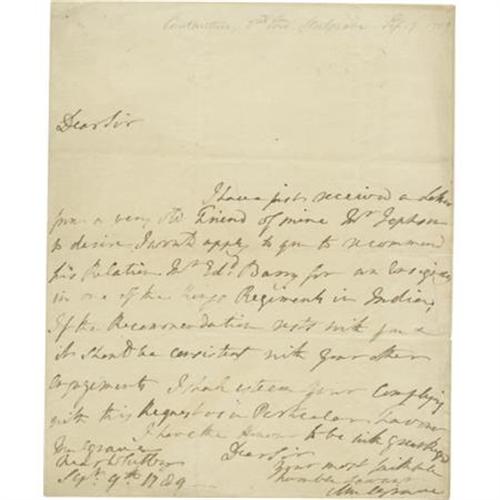 Dear Sir
I have just received a Letter
from a very old Friend of mine Mr Jephson
to desire I would apply to you to recommend
his Relation Mr Edd Barry for an Ensigncy
in one of the Kings Regiments in India,
If the Recommendation rests with you &
it should be consistent with your other
engagements I shall esteem your Complying
with this Request as a Particular favour
I have the Honour to be with great Regd
Dear Sir
your most faithful
humble Servant
Mulgrave
Sepr 9th 1789